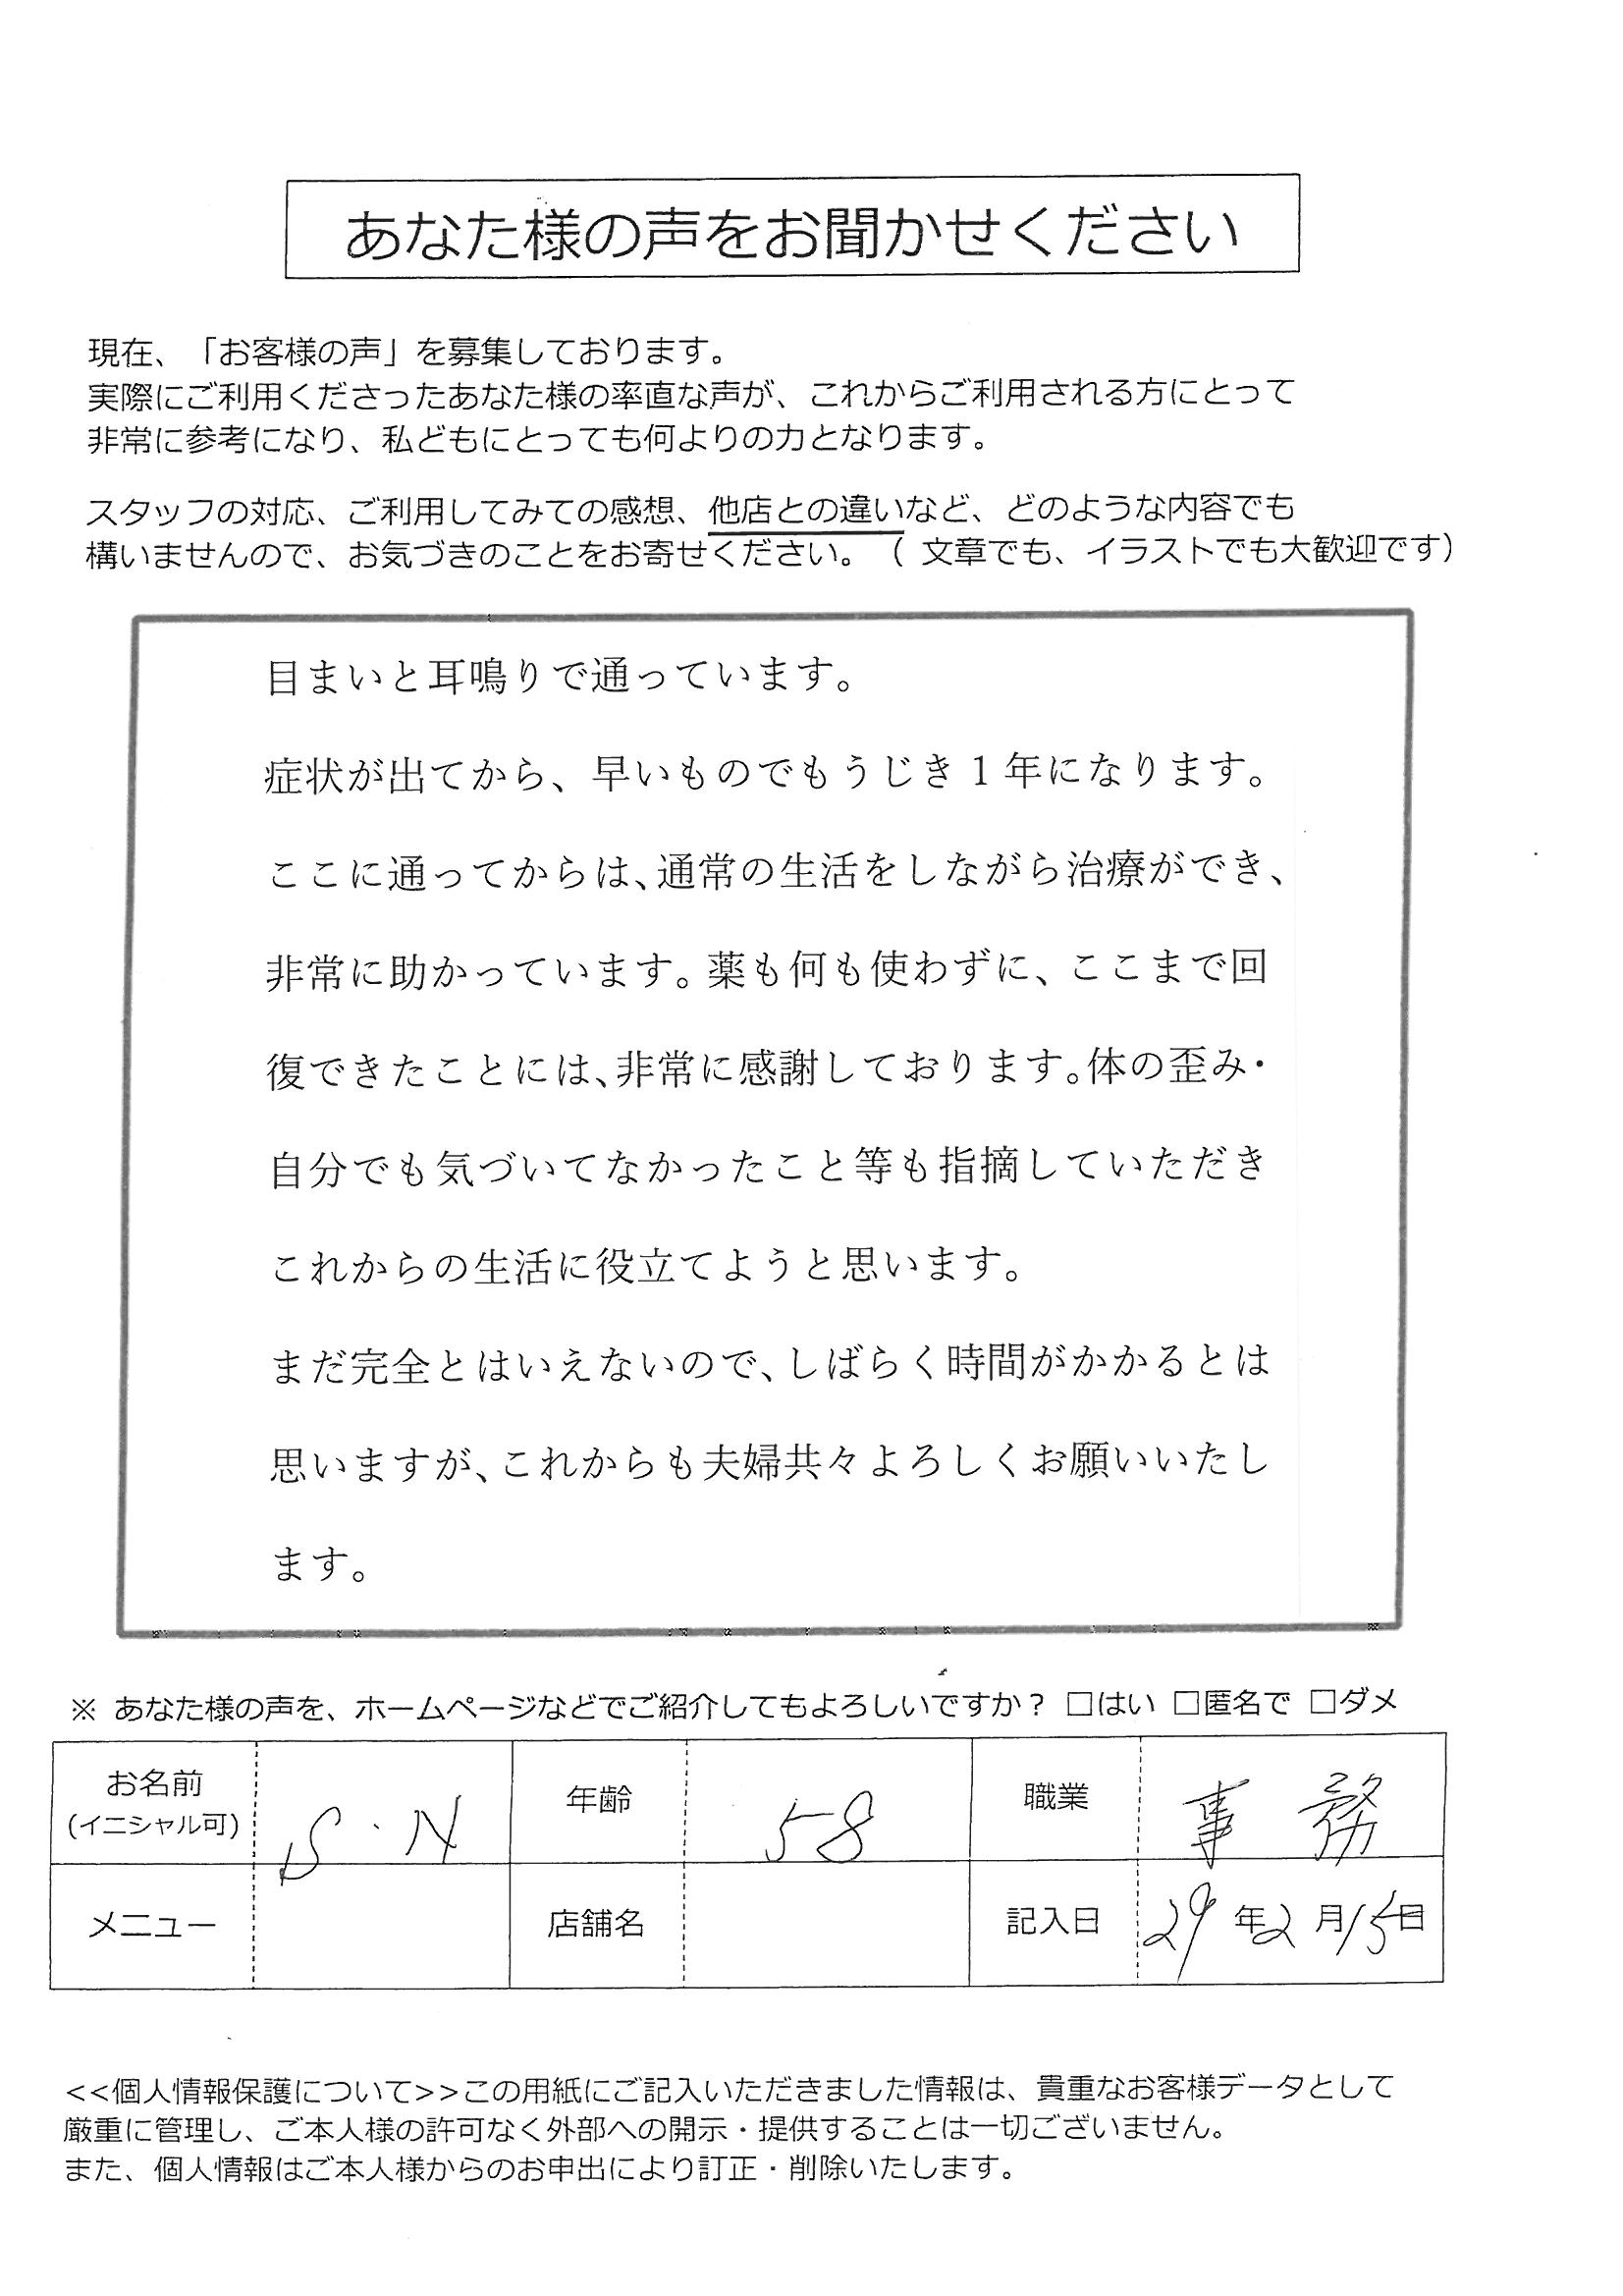 あなた様の声をお聞かせください
現在、「お客様の声」を募集しております。
実際にご利用くださったあなた様の率直な声が、これからご利用される方にとって
非常に参考になり、私どもにとっても何よりの力となります。
スタッフの対応、ご利用してみての感想、他店との違いなど、どのような内容でも
構いませんので、お気づきのことをお寄せください。（ 文章でも、イラストでも大歓迎です）
目まいと耳鳴りで通っています。
症状が出てから、早いものでもうじき１年になります。
ここに通ってからは、通常の生活をしながら治療ができ、
非常に助かっています。薬も何も使わずに、ここまで回
復できたことには、非常に感謝しております。体の歪み・
自分でも気づいてなかったこと等も指摘していただき
これからの生活に役立てようと思います。
まだ完全とはいえないので、しばらく時間がかかるとは
思いますが、これからも夫婦共々よろしくお願いいたし
ます。
※ あなた様の声を、ホームページなどでご紹介してもよろしいですか？ □はい □匿名で □ダメ
お名前
(イニシャル可)
S・N
年齢
58
職業
事務
メニュー
店舗名
記入日
29年2月15日
<<個人情報保護について>>この用紙にご記入いただきました情報は、貴重なお客様データとして
厳重に管理し、ご本人様の許可なく外部への開示・提供することは一切ございません。
また、個人情報はご本人様からのお申出により訂正・削除いたします。